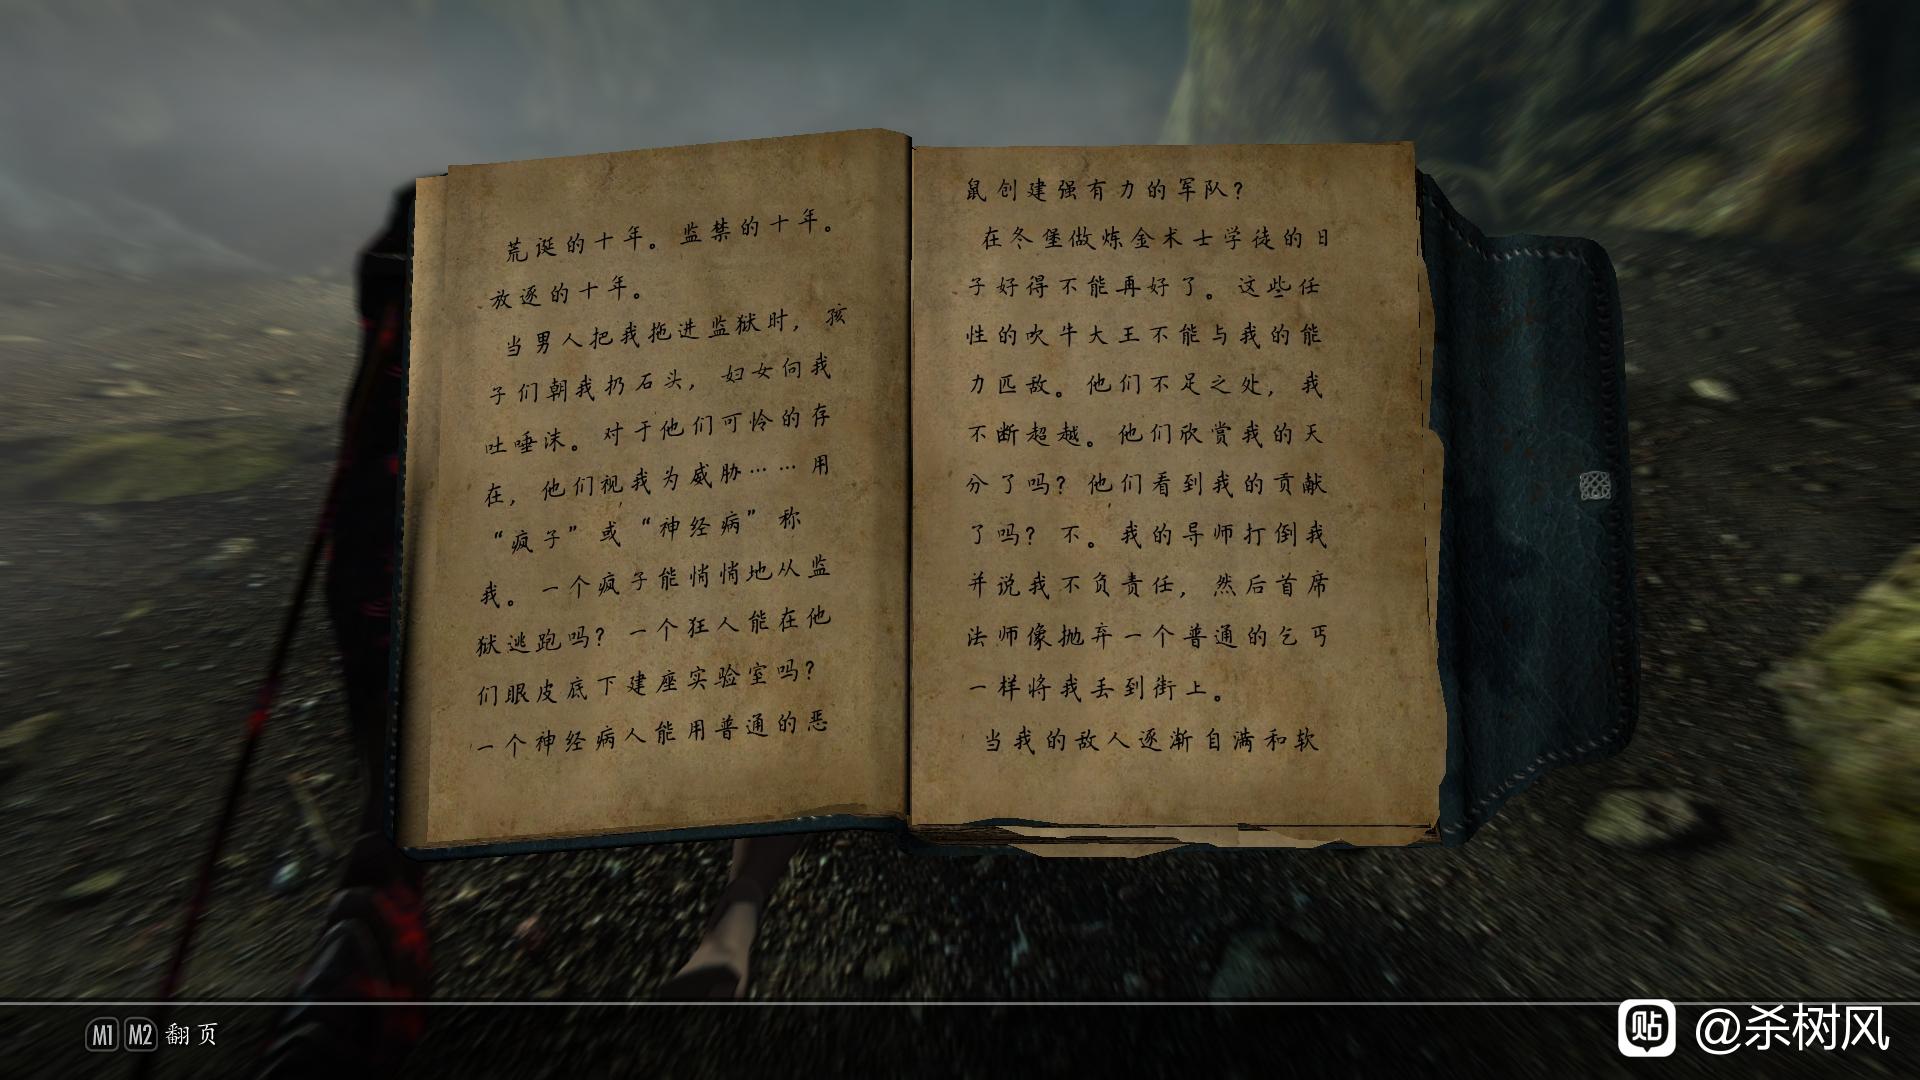 荒诞的十年。监禁的十年。
放逐的十年。
当男人把我拖进监狱时，孩
子们朝我扔石头，妇女向我
吐唾沫。对于他们可怜的存
在，他们视我为威胁……用
“疯子”或“神经病”称
我。一个疯子能悄悄地从监
狱逃跑吗？一个狂人能在他
们眼皮底下建座实验室吗？
一个神经病人能用普通的恶
鼠创建强有力的军队？
在冬堡做炼金术士学徒的日
子好得不能再好了。这些任
性的吹牛大王不能与我的能
力匹敌。他们不足之处，我
不断超越。他们欣赏我的天
分了吗？他们看到我的贡献
了吗？不。我的导师打倒我
并说我不负责任，然后首席
法师像抛弃一个普通的乞丐
一样将我丢到街上。
当我的敌人逐渐自满和软
M1 M2 翻页
贴 @杀树风